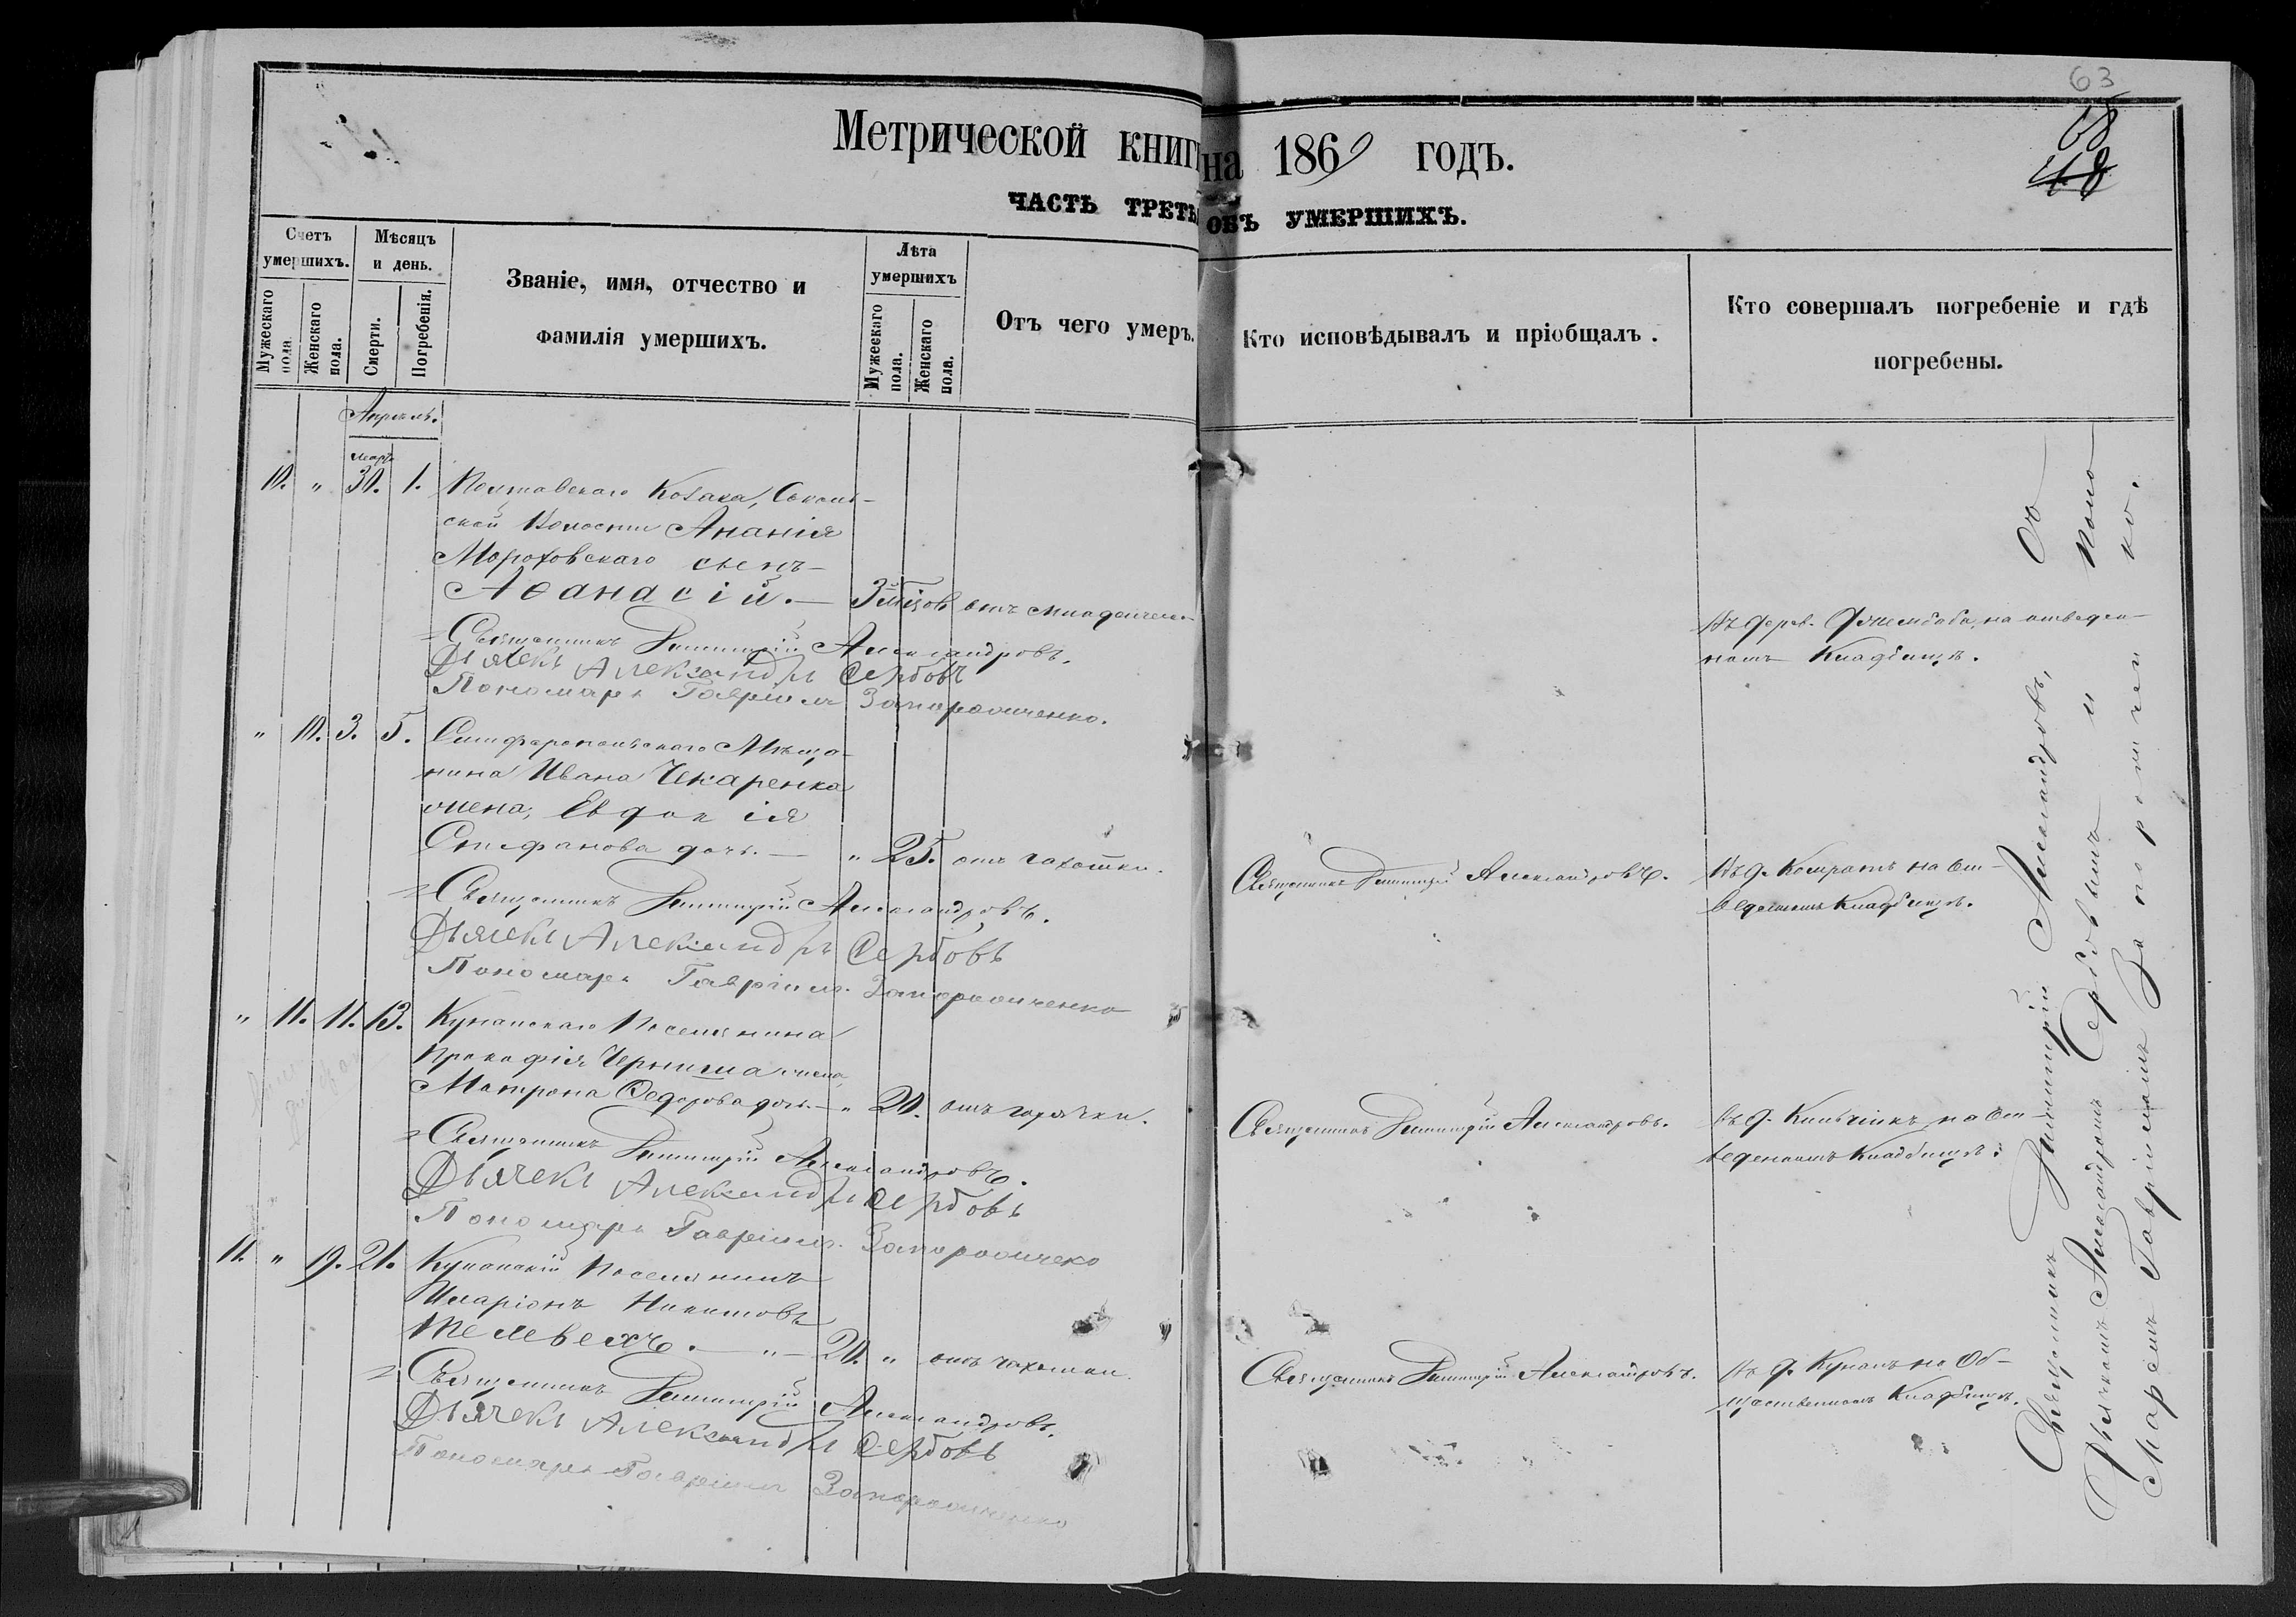 63
58
48
Метрической книги на 1869 годъ.
ЧАСТЬ ТРЕТЬ ОБЪ УМЕРШИХЪ.
Счетъ умершихъ.
Мужескаго пола.
Женскаго пола.
Мѣсяцъ и день.
Смерти.
Погребенія.
Званіе, имя, отчество и
фамилія умершихъ.
Лѣта умершихъ
Мужескаго пола.
Женскаго пола.
Отъ чего умеръ.
Кто исповѣдывалъ и пріобщалъ.
Кто совершалъ погребеніе и гдѣ
погребены.
Апрѣль.
март
10. " 30. 1. Полтавскаго Козака,
ской Волости Ананія
Мороховскаго сынъ
Аѳанасій. — 3 отъ
Въ дерев. на отведен-
номъ Кладбищѣ.
Священникъ Димитрій Александровъ.
Дьячекъ Александръ Сербовъ
Пономарь Гавріилъ Запорожченко.
" 10. 3. 5. Симферопольскаго Мѣща-
нина Ивана Чекаренка
жена, Евдокія
Стефанова дочь. — " 25. отъ чахотки.
Священникъ Димитрій Александровъ.
Въ д. Комратъ на от-
веденномъ Кладбищѣ.
Священникъ Димитрій Александровъ.
Дьячекъ Александръ Сербовъ
Пономарь Гавріилъ Запорожченко
" 11. 11. 13. Кунанскаго Поселянина
Прокофія Черныша жена,
Матрона Ѳедорова дочь. — " 20. отъ горячки.
Священникъ Димитрій Александровъ.
въ д. Кильчикъ на от-
веденномъ Кладбищѣ.
Священникъ Димитрій Александровъ.
Дьячекъ Александръ Сербовъ
Пономарь Гавріилъ Запорожчеко
11. " 19. 21. Кунанскій Поселянинъ
Иларіонъ Никитовъ
Телевехъ. — " — 20. " отъ чахотки.
Священникъ Димитрій Александровъ.
Въ д. Кунанъ на Об-
щественномъ Кладбищѣ.
Священникъ Димитрій Александровъ.
Дьячекъ Александръ Сербовъ
Пономарь Гавріилъ Запорожченко
Священникъ Димитрій Александровъ, Съ
Дьячкомъ Александромъ Сербовымъ и Поно-
маремъ Гавріиломъ Запорожченко.